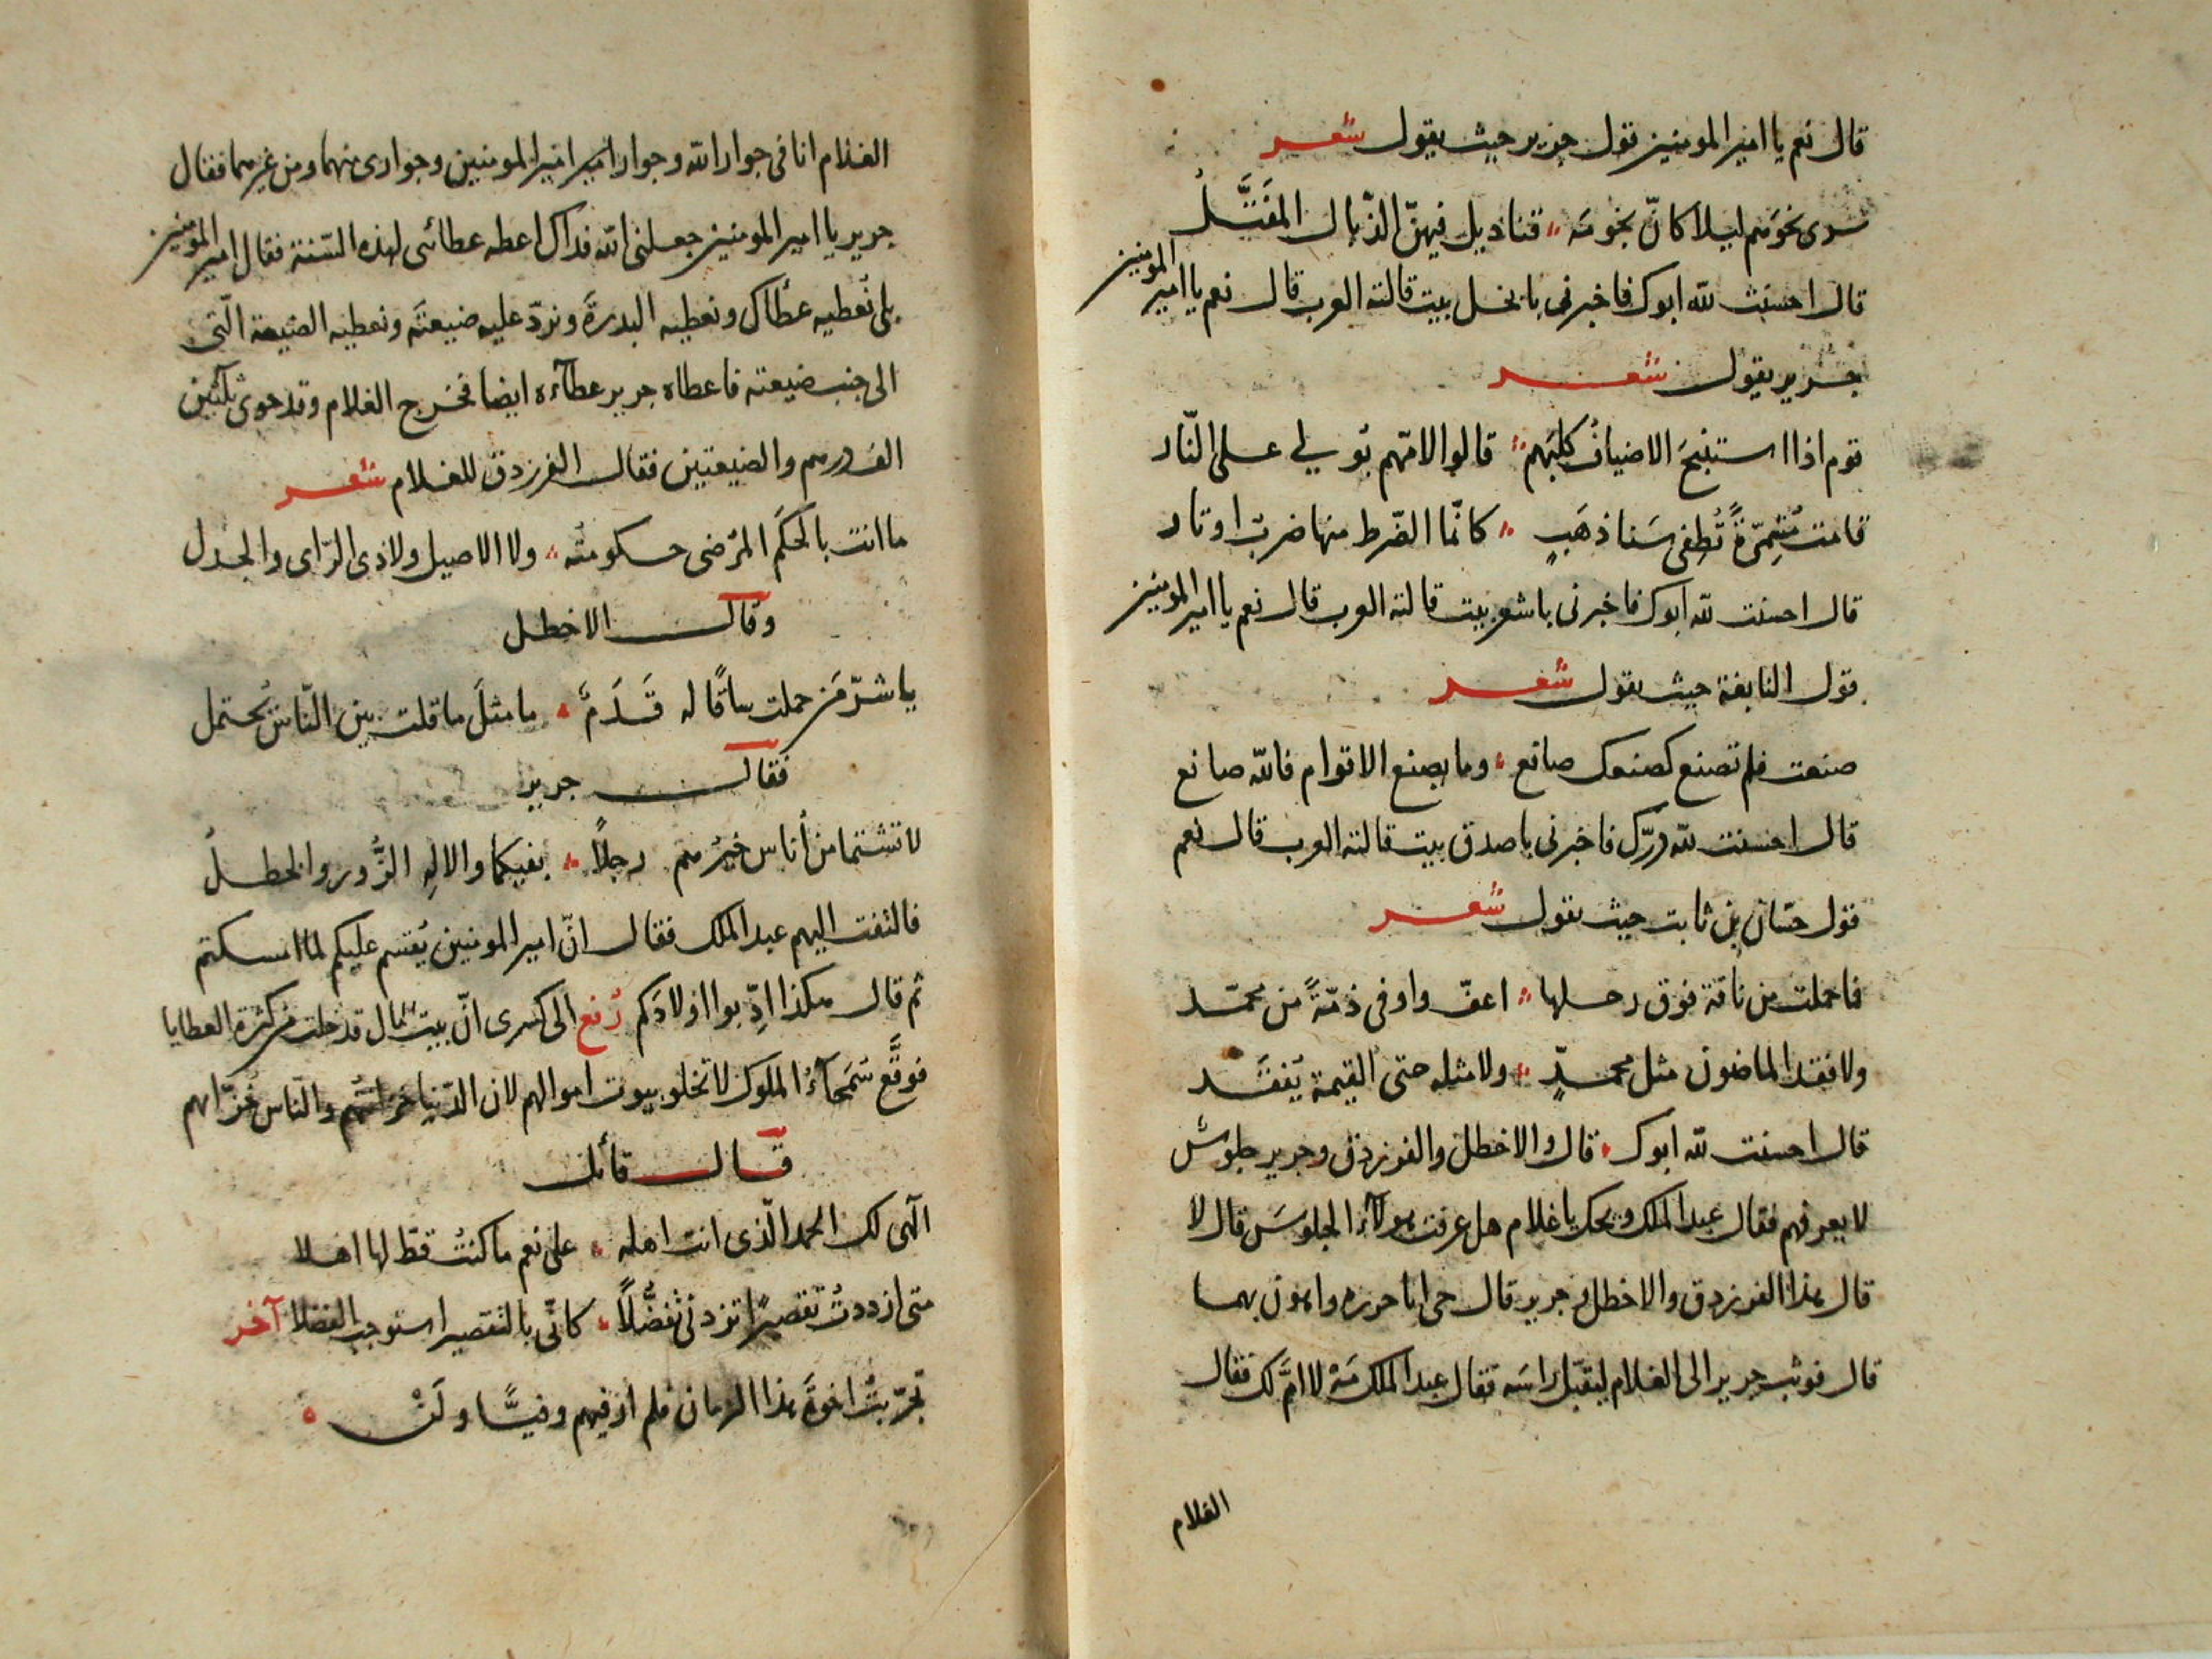 قال نعم يا امير المومنين قول جرير حيث يقول شعر
سرى نحوهم ليلا كانّ نجومه قناديل فيهنّ الذّبال المفتَّلُ
قال احسنت لله ابوك فاخبرنى بابخل بيت قالته العرب قال نعم يا امير المومنين
جرير يقول شعر
قوم اذا استنبحَ الاضيافُ كلبَهم قالوا لامّهم بُولي على النّار
قامت مُشمِّرةً تُطفى سَنا ذهَبٍ كانّما الضّرط منها ضربُ اوتار
قال احسنت لله ابوك فاخبرنى باشعر بيت قالته العرب قال نعم يا امير المومنين
قول النابغة حيث يقول شعر
صنعت فلم تصنع كصنعك صانع وما يصنع الاقوام فالله صانع
قال احسنت لله درّك فاخبرنى باصدق بيت قالته العرب قال نعم
قول حسّان بن ثابت حيث يقول شعر
فما حملت من ناقة فوق رحلها اعفّ واوفى ذمّةً من محمّد
ولا فقد الماضون مثل محمّدٍ ولا مثله حتى القيمة يُفقَد
قال احسنت لله ابوك قال والاخطل والفرزدق وجرير جلوسٌ
لا يعرفهم فقال عبد الملك ويحك يا غلام هل عرفت هولآء الجلوسَ قال لا
قال هذا الفرزدق والاخطل وجرير قال حى ابا حرزه واهون بهما
قال فوثب جرير الى الغلام ليقبّل راسَه فقال عبد الملك مَهْ لا امّ لك فقال
الغلام
الغلام انا فى جوار الله وجوار امير المومنين وجوارى منهما ومن غيرهما فقال
جرير يا امير المومنين جعلنى الله فداك اعطه عطائى لهذه السّنة فقال امير المومنين
بلى نُعطيه عطاك ونعطيه البدرةَ ونردّ عليه ضيعتَه ونعطيه الضيعة الّتى
الى جنب ضيعته فاعطاه جرير عطآءه ايضا فخرج الغلام وقد حوى ثلثين
الف درهم والضيعتين فقال الفرزدق للغلام شعر
ما انت بالحكَم المرضى حكومتُه ولا الاصيل ولا ذى الرّاى والجدل
وقال الاخطل
يا شرّ مَن حملت ساقًا له قَدَمٌ ما مثلَ ما قلت بين النّاس يُحتمل
فقال جرير
لا تشتما من أناس خيرُهم رجلاً بفيكما والالهِ الزُّور والخطلُ
فالتفت اليهم عبد الملك فقال انّ امير المومنين يُقسم عليكم لما امسكتم
ثم قال هكذا ادِّبوا اولادَكم رُفع الى كسرى انّ بيت المال قد خلت من كثرة العطايا
فوقَّع سُمَحآءُ الملوك لا تخلو بيوت اموالهم لان الدّنيا خزانتهم والنّاس خزّانهم
قال قائل
الٓهى لك الحمد الّذى انت اهله على نعم ما كنتُ قطّ لها اهلا
متى ازددتُ تقصيرًا تزدنى تفضُّلاً كانّى بالتقصير استوجب الفضلا آخر
تجرّبتُ اخوةَ هذا الزمان فلم ار فيهم وفيًّا ولَنْ